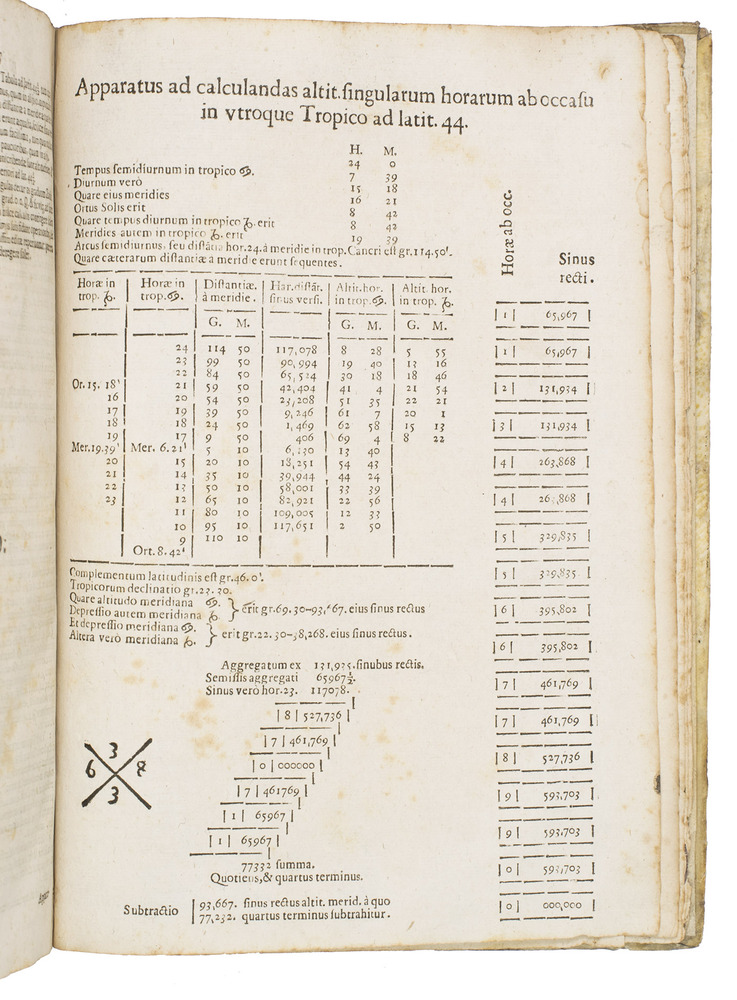 Apparatus ad calculandas altit.ſingularum horarum ab occaſu
in vtroque Tropico ad latit. 44.
H. M.
Tempus ſemidiurnum in tropico ♋. 24 0
Diurnum verò 7 39
Quare eius meridies 15 18
Ortus Solis erit 16 21
Quare tempus diurnum in tropico ♑. erit 8 42
Meridies autem in tropico ♑. erit 8 42
19 39
Arcus ſemidiurnus, ſeu diſtãtia hor.24.à meridie in trop.Cancri eſt gr.114.50'.
Quare cæterarum diſtantiæ a meridie erunt ſequentes.
Horæ in trop. ♑. | Horæ in trop.♋. | Diſtantiæ. à meridie. | Har.diſtãt. ſinus verſi. | Altit.hor. in trop.♋. | Altit. hor. in trop. ♑.
G. M. | G. M. | G. M.
24 | 114 50 | 117,078 | 8 28 | 5 55
23 | 99 50 | 90,994 | 19 40 | 13 16
22 | 84 50 | 65,524 | 30 18 | 18 46
Or. 15. 18' | 21 | 59 50 | 42,404 | 41 4 | 21 54
16 | 20 | 54 50 | 23,208 | 51 35 | 22 21
17 | 19 | 39 50 | 9,246 | 61 7 | 20 1
18 | 18 | 24 50 | 1,469 | 62 58 | 15 13
19 | 17 | 9 50 | 406 | 69 4 | 8 22
Mer.19.39' | Mer. 6.21' | 5 10 | 6,130 | 13 40
20 | 15 | 20 10 | 18,251 | 54 43
21 | 14 | 35 10 | 39,944 | 44 24
22 | 13 | 50 10 | 58,001 | 33 39
23 | 12 | 65 10 | 82,921 | 22 56
11 | 80 10 | 109,005 | 12 33
10 | 95 10 | 117,651 | 2 50
9 | 110 10
Ort. 8.42'
Complementum latitudinis eſt gr.46. 0'.
Tropicorum declinatio gr.23. 30.
Quare altitudo meridiana ♋.
Depreſſio autem meridiana ♑. } erit gr.69. 30–93,667. eius ſinus rectus
Et depreſſio meridiana ♋.
Altera verò meridiana ♑. } erit gr.22. 30–38,268. eius ſinus rectus.
Aggregatum ex 131,935.ſinubus rectis.
Semiſſis aggregati 65967½.
Sinus verò hor.23. 117078.
| 8 | 527,736 |
| 7 | 461,769 |
| 0 | 000000 |
| 7 | 461769 |
| 1 | 65967 |
| 1 | 65967 |
77332 ſumma.
Quotiens,& quartus terminus.
3
6 8
3
Subtractio | 93,667. ſinus rectus altit. merid. à quo
77,232. quartus terminus ſubtrahitur.
Horæ ab occ.
Sinus
recti.
| 1 | 65,967 |
| 1 | 65,967 |
| 2 | 131,934 |
| 3 | 131,934 |
| 4 | 263,868 |
| 4 | 263,868 |
| 5 | 329,835 |
| 5 | 329,835 |
| 6 | 395,802 |
| 6 | 395,802 |
| 7 | 461,769 |
| 7 | 461,769 |
| 8 | 527,736 |
| 9 | 593,703 |
| 9 | 593,703 |
| 0 | 593,703 |
| 0 | 000,000 |